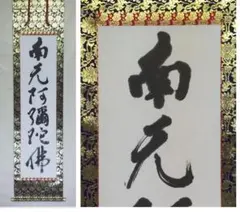 南无阿彌陀佛
南无